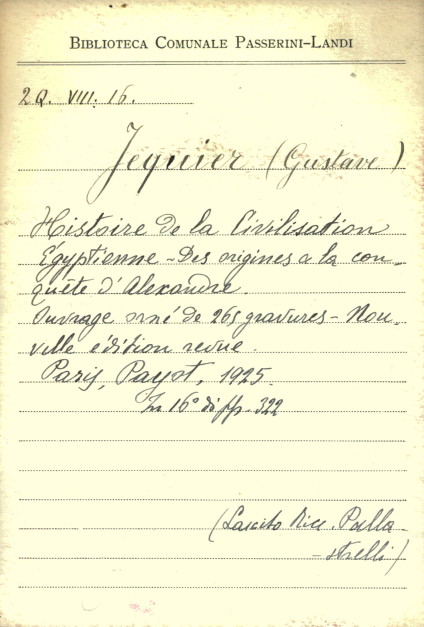 BIBLIOTECA COMUNALE PASSERINI-LANDI
2Q. VIII. 16.
Jequier (Gustave)
Histoire de la Civilisation
Égyptienne - Des origines a la con-
quête d'Alexandre.
Ouvrage orné de 265 gravures - Nou-
velle édition revue.
Paris, Payot, 1925.
In 16° di pp. 322
(Lascito Ricc. Palla-
-strelli)